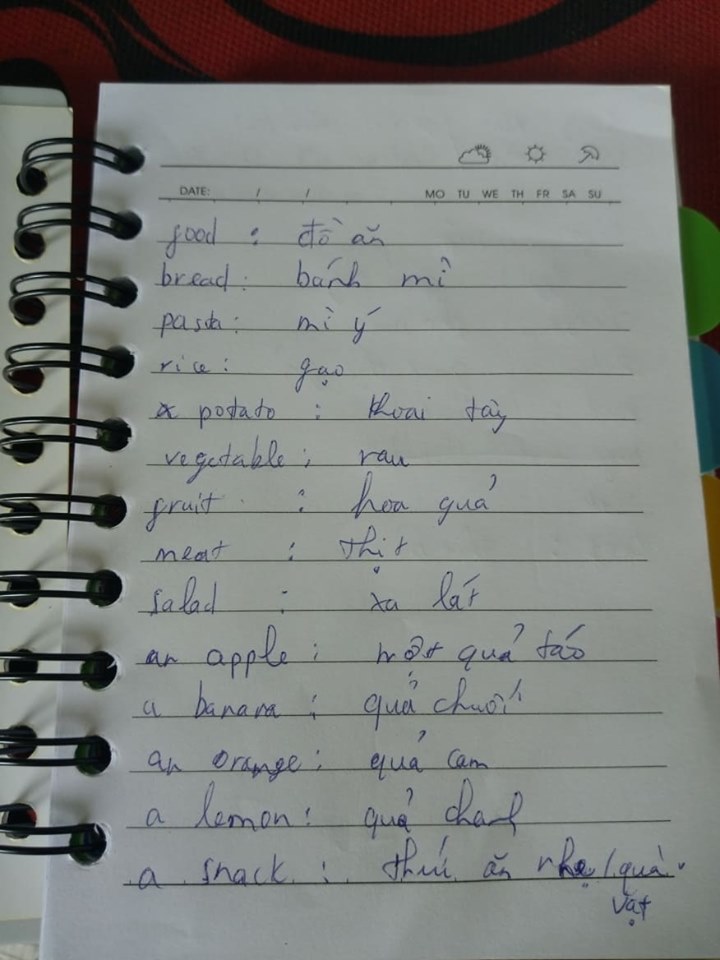 DATE: / / MO TU WE TH FR SA SU
food : đồ ăn
bread : bánh mì
pasta : mì ý
rice : gạo
potato : khoai tây
vegetable : rau
fruit : hoa quả
meat : thịt
salad : xa lát
an apple : một quả táo
a banana : quả chuối
an orange : quả cam
a lemon : quả chanh
a snack : thức ăn nhẹ / quà
vặt